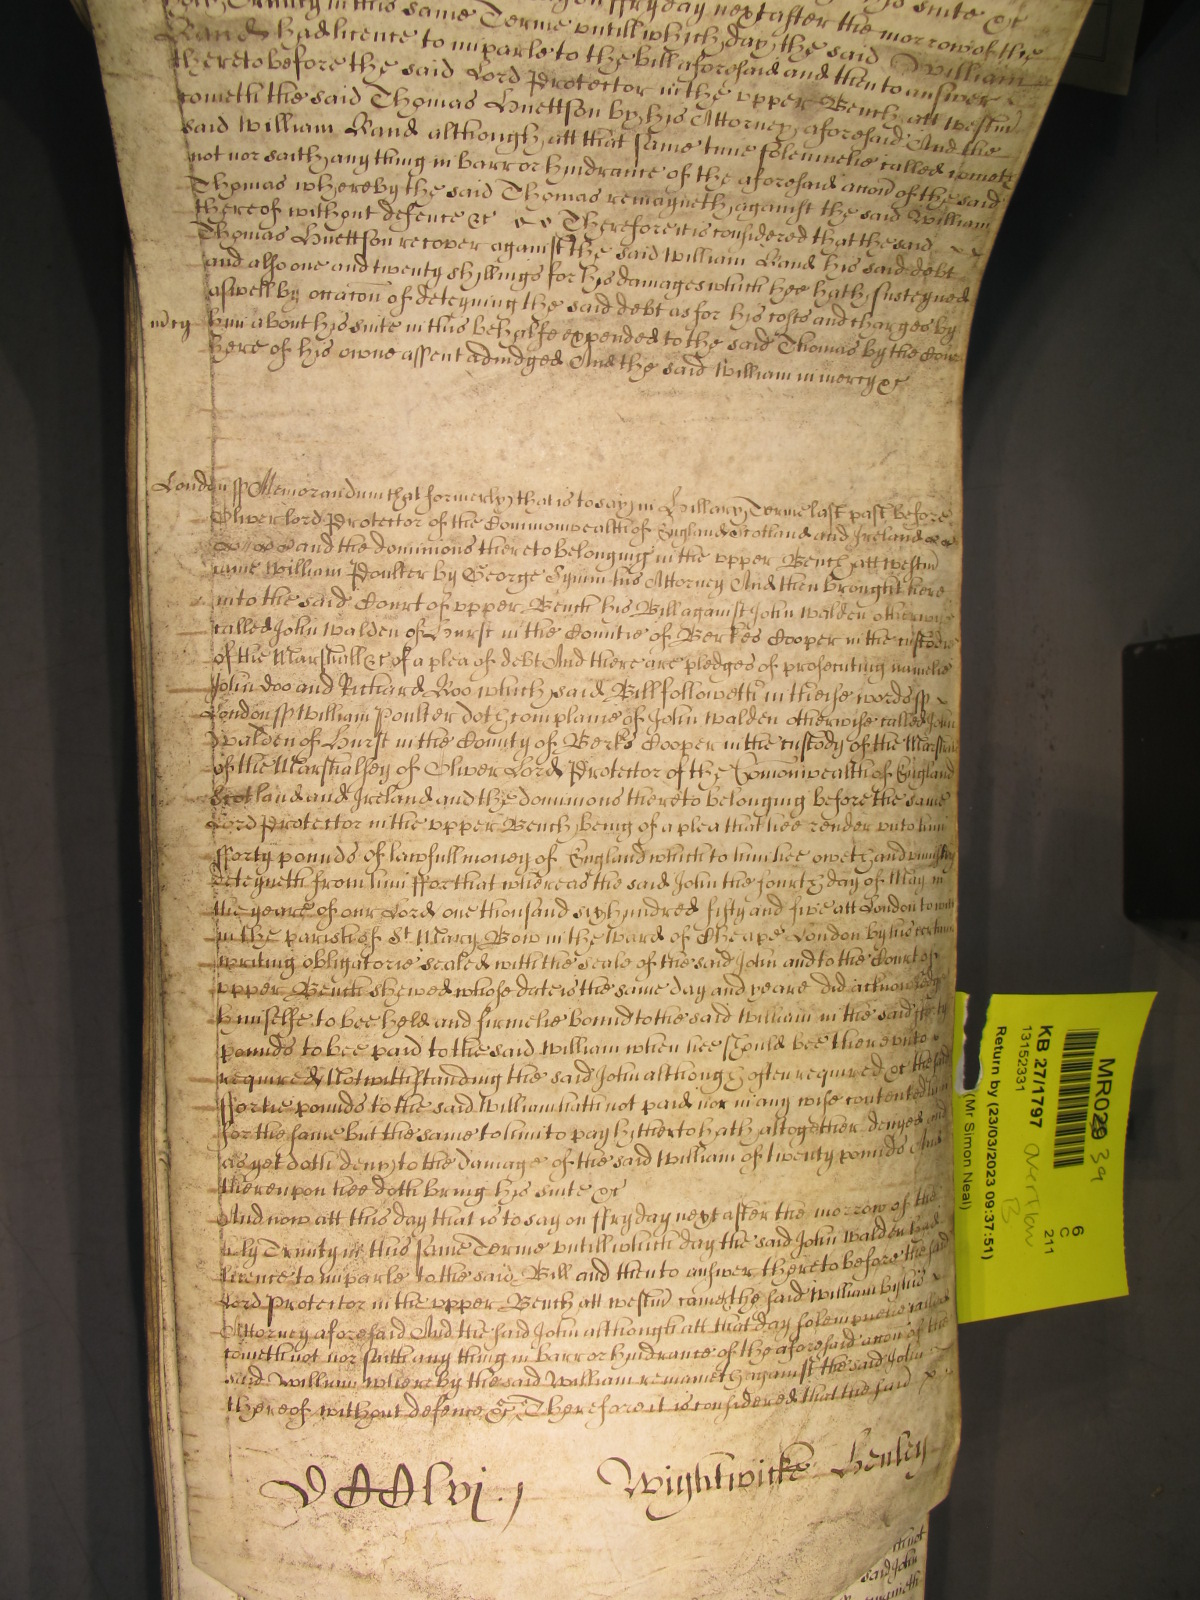 holy Trinity in this same Terme untill which day the said William
Rand had licence to imparle to the bill aforesaid and then to answer
thereto before the said Lord Protector in the upper Bench att Westm
cometh the said Thomas Huettson by his Attorney aforesaid And the
said William Rand although att that same time solemnelie called cometh
not nor saith any thing in barr or hindrance of the aforesaid accon of the said
Thomas whereby the said Thomas remayneth against the said William
thereof without defence &c Therefore it is considered that the said
Thomas Huettson recover against the said William Rand his said debt
and also one and twenty shillings for his damages which hee hath susteyned
aswell by occacon of deteyning the said debt as for his costs and charges by
mcy
him about his suite in this behalfe expended to the said Thomas by the Court
here of his owne assent adiudged And the said William in mercy &c
London ss Memorandum that formerly that is to say in Hillary Terme last past before
Oliver lord Protector of the Commonwealth of England Scotland and Ireland
and the dominions thereto belonging in the upper Bench att Westm
came William Poulter by George Symm his Attorney And then brought here
into the said Court of upper Bench his Bill against John Walden otherwise
called John Walden of Hurst in the Countie of Berkes Cooper in the custodie
of the Marshall &c of a plea of debt And there are pledges of prosecuting namelie
John Doo and Richard Roo which said Bill followeth in theise words ss
London ss William Poulter doth complaine of John Walden otherwise called John
Walden of Hurst in the County of Berks Cooper in the custody of the Marshall
of the Marshalsey of Oliver Lord Protector of the Comonwealth of England
Scotland and Ireland and the dominions thereto belonging before the same
Lord Protector in the upper Bench being of a plea that hee render unto him
fforty pounds of lawfull money of England which to him hee oweth and uniustly
deteyneth from him ffor that whereas the said John the fourth day of May in
the yeare of our Lord one thousand six hundred fifty and five att London to witt
in the parish of St Mary Bow in the ward of Cheape London by his certein
writing obligatorie sealed with the seale of the said John and to the Court of
upper Bench shewed whose date is the same day and yeare did acknowledge
himselfe to bee held and firmelie bound to the said William in the said fforty
pounds to bee paid to the said William when hee should bee thereunto
required Notwithstanding the said John although often required &c the said
ffortie pounds to the said William hath not paid nor in any wise contented him
for the same but the same to him to pay hitherto hath altogether denyed and
as yet doth deny to the damage of the said William of twenty pounds And
thereupon hee doth bring his suite &c
And now att this day that is to say on ffryday next after the morrow of the
holy Trinity in this same Terme untill which day the said John Walden had
licence to imparle to the said Bill and then to answer thereto before the said
Lord Protector in the upper Bench att Westm cometh the said William by his
Attorney aforesaid And the said John although att that day solempnelie called
cometh not nor saith any thing in barr or hindrance of the aforesaid accon of the
said William whereby the said William remaneth against the said John
thereof without defence &c Therefore it is considered that the said
Wightwicke Henley
MR029
39
KB 27/1797
13152331
Overflow
B
6
C
211
Return by (23/03/2023 09:37:51)
(Mr Simon Neal)
said John